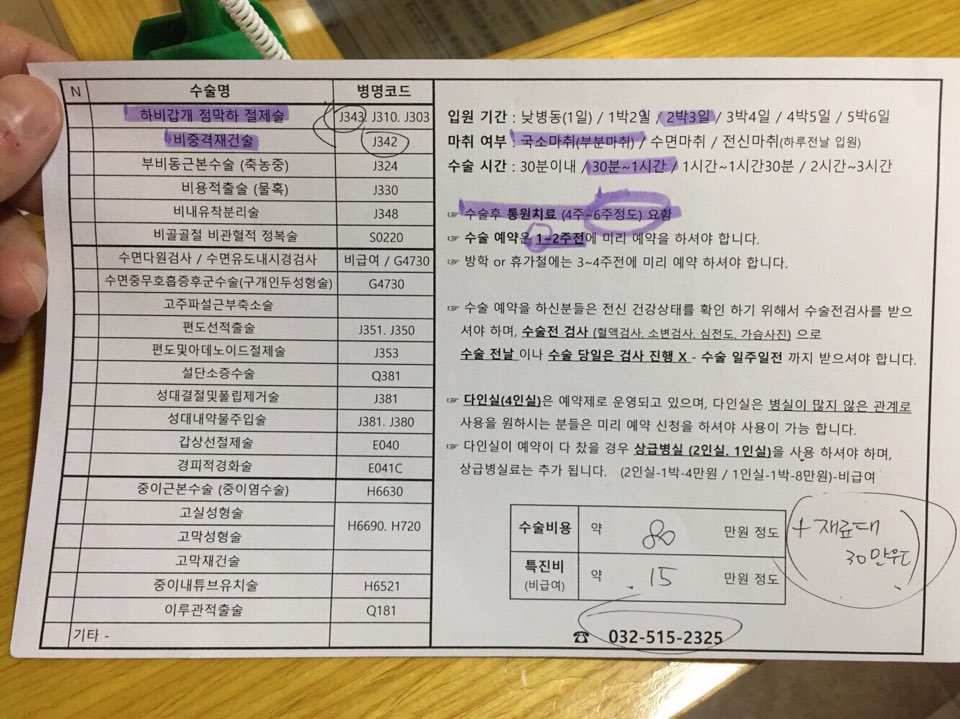 N 수술명 병명코드
하비갑개 점막하 절제술 J343, J310. J303
비중격재건술 J342
부비동근본수술 (축농중) J324
비용적출술 (물혹) J330
비내유착분리술 J348
비골골절 비관혈적 정복술 S0220
수면다원검사 / 수면유도내시경검사 비급여 / G4730
수면중무호흡증후군수술(구개인두성형술) G4730
고주파설근부축소술
편도선적출술 J351. J350
편도및아데노이드절제술 J353
설단소증수술 Q381
성대결절및폴립제거술 J381
성대내약물주입술 J381. J380
갑상선절제술 E040
경피적경화술 E041C
중이근본수술 (중이염수술) H6630
고실성형술
고막성형술 H6690. H720
고막재건술
중이내튜브유치술 H6521
이루관적출술 Q181
기타 -
입원 기간 : 낮병동(1일) / 1박2일 / 2박3일 / 3박4일 / 4박5일 / 5박6일
마취 여부 : 국소마취(부분마취) / 수면마취 / 전신마취(하루전날 입원)
수술 시간 : 30분이내 / 30분~1시간 / 1시간~1시간30분 / 2시간~3시간
☞ 수술후 통원치료 (4주~6주정도) 요함
☞ 수술 예약은 1~2주전에 미리 예약을 하셔야 합니다.
☞ 방학 or 휴가철에는 3~4주전에 미리 예약 하셔야 합니다.
☞ 수술 예약을 하신분들은 전신 건강상태를 확인 하기 위해서 수술전검사를 받으
셔야 하며, 수술전 검사 (혈액검사, 소변검사, 심전도, 가슴사진) 으로
수술 전날 이나 수술 당일은 검사 진행 X - 수술 일주일전 까지 받으셔야 합니다.
☞ 다인실(4인실)은 예약제로 운영되고 있으며, 다인실은 병실이 많지 않은 관계로
사용을 원하시는 분들은 미리 예약 신청을 하셔야 사용이 가능 합니다.
☞ 다인실이 예약이 다 찼을 경우 상급병실 (2인실, 1인실)을 사용 하셔야 하며,
상급병실료는 추가 됩니다. (2인실-1박-4만원 / 1인실-1박-8만원)-비급여
수술비용 약 80 만원 정도
특진비 (비급여) 약 15 만원 정도
+ 재료대
30만원
☎ 032-515-2325